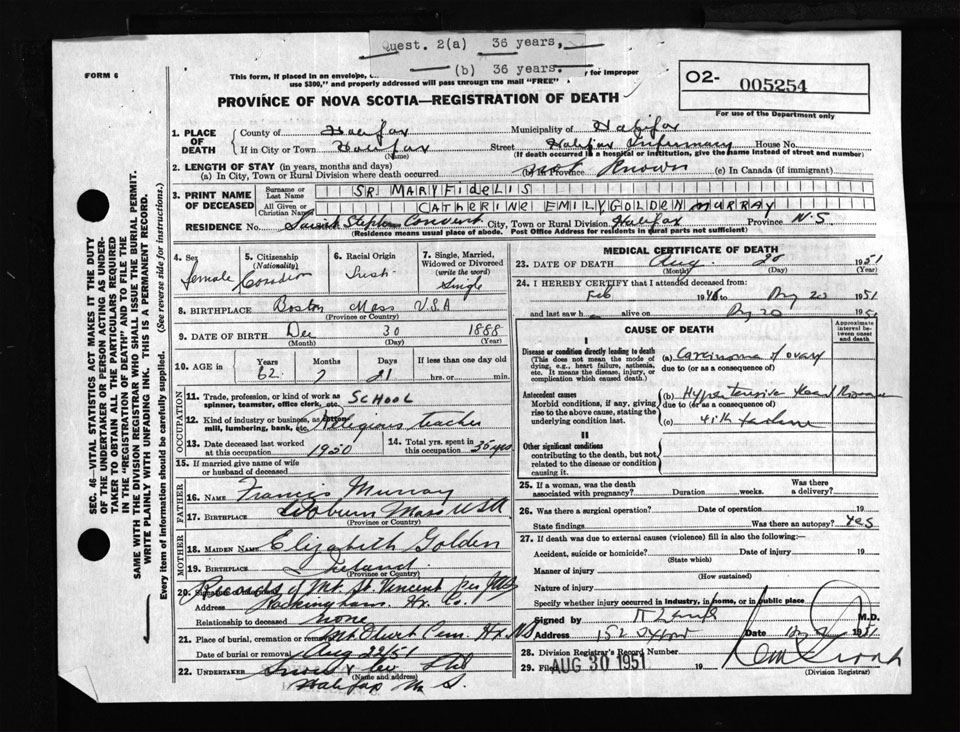 Quest. 2(a) 36 years,
(b) 36 years.
FORM 6
This form, if placed in an envelope, for improper
use $300," and properly addressed will pass through the mail "FREE"
PROVINCE OF NOVA SCOTIA—REGISTRATION OF DEATH
O2- 005254
For use of the Department only
1. PLACE OF DEATH
County of Halifax Municipality of Halifax
If in City or Town Halifax Street Halifax Infirmary House No.
(Name) (If death occurred in a hospital or institution, give the name instead of street and number)
2. LENGTH OF STAY (in years, months and days)
(a) In City, Town or Rural Division where death occurred (b) In Province Not Known (c) In Canada (if immigrant)
3. PRINT NAME OF DECEASED
Surname or Last Name SR MARY FIDELIS
All Given or Christian Names CATHERINE EMILY GOLDEN MURRAY
RESIDENCE No. Saint Stephen Convent City, Town or Rural Division Halifax Province N.S
(Residence means usual place of abode. Post Office Address for residents in rural parts not sufficient)
4. Sex female
5. Citizenship (Nationality)
6. Racial Origin Irish
7. Single, Married, Widowed or Divorced (write the word) Single
8. BIRTHPLACE Boston Mass USA
(Province or Country)
9. DATE OF BIRTH Dec 30 1888
(Month) (Day) (Year)
10. AGE in Years 62 Months 7 Days 21 If less than one day old hrs. or min.
OCCUPATION
11. Trade, profession, or kind of work as spinner, teamster, office clerk, etc. SCHOOL
12. Kind of industry or business, as cotton mill, lumbering, bank, etc. Religious teacher
13. Date deceased last worked at this occupation 1950
14. Total yrs. spent in this occupation 36 years
15. If married give name of wife or husband of deceased
FATHER
16. NAME Francis Murray
17. BIRTHPLACE Woburn Mass USA
(Province or Country)
MOTHER
18. MAIDEN NAME Elizabeth Golden
19. BIRTHPLACE Ireland
(Province or Country)
20. Records of Mt. St. Vincent
Address Rockingham Hx. Co.
Relationship to deceased none
21. Place of burial, cremation or removal Mt Olivet Cem. Hx NS
Date of burial or removal Aug 22/51
22. UNDERTAKER Snow & Co Ltd
(Name and address)
Halifax N. S.
MEDICAL CERTIFICATE OF DEATH
23. DATE OF DEATH Aug 20 1951
(Month) (Day) (Year)
24. I HEREBY CERTIFY that I attended deceased from:
Feb 1946 to Aug 20 1951
and last saw h alive on Aug 20 19
CAUSE OF DEATH
Approximate interval between onset and death
I
Disease or condition directly leading to death
(This does not mean the mode of dying, e.g., heart failure, asthenia, etc. It means the disease, injury, or complication which caused death.)
(a) Carcinoma of ovary
due to (or as a consequence of)
Antecedent causes
Morbid conditions, if any, giving rise to the above cause, stating the underlying condition last.
(b) Hypertensive Heart Disease
due to (or as a consequence of)
(c) with failure
II
Other significant conditions
contributing to the death, but not related to the disease or condition causing it.
25. If a woman, was the death associated with pregnancy? Duration weeks. Was there a delivery?
26. Was there a surgical operation? Date of operation 19
State findings Was there an autopsy? Yes
27. If death was due to external causes (violence) fill in also the following:—
Accident, suicide or homicide? (State which) Date of injury 19
Manner of injury
(How sustained)
Nature of injury
Specify whether injury occurred in industry, in home, or in public place
Signed by M.D.
Address 152 Date 1951
28. Division Registrar's Record Number
29. Filed AUG 30 1951 19
(Division Registrar)
SEC. 46—VITAL STATISTICS ACT MAKES IT THE DUTY
OF THE UNDERTAKER OR PERSON ACTING AS UNDER-
TAKER TO OBTAIN ALL THE PARTICULARS REQUIRED
IN THE "REGISTRATION OF DEATH" AND TO FILE THE
SAME WITH THE DIVISION REGISTRAR WHO SHALL ISSUE THE BURIAL PERMIT.
WRITE PLAINLY WITH UNFADING INK. THIS IS A PERMANENT RECORD.
Every item of information should be carefully supplied. (See reverse side for instructions.)